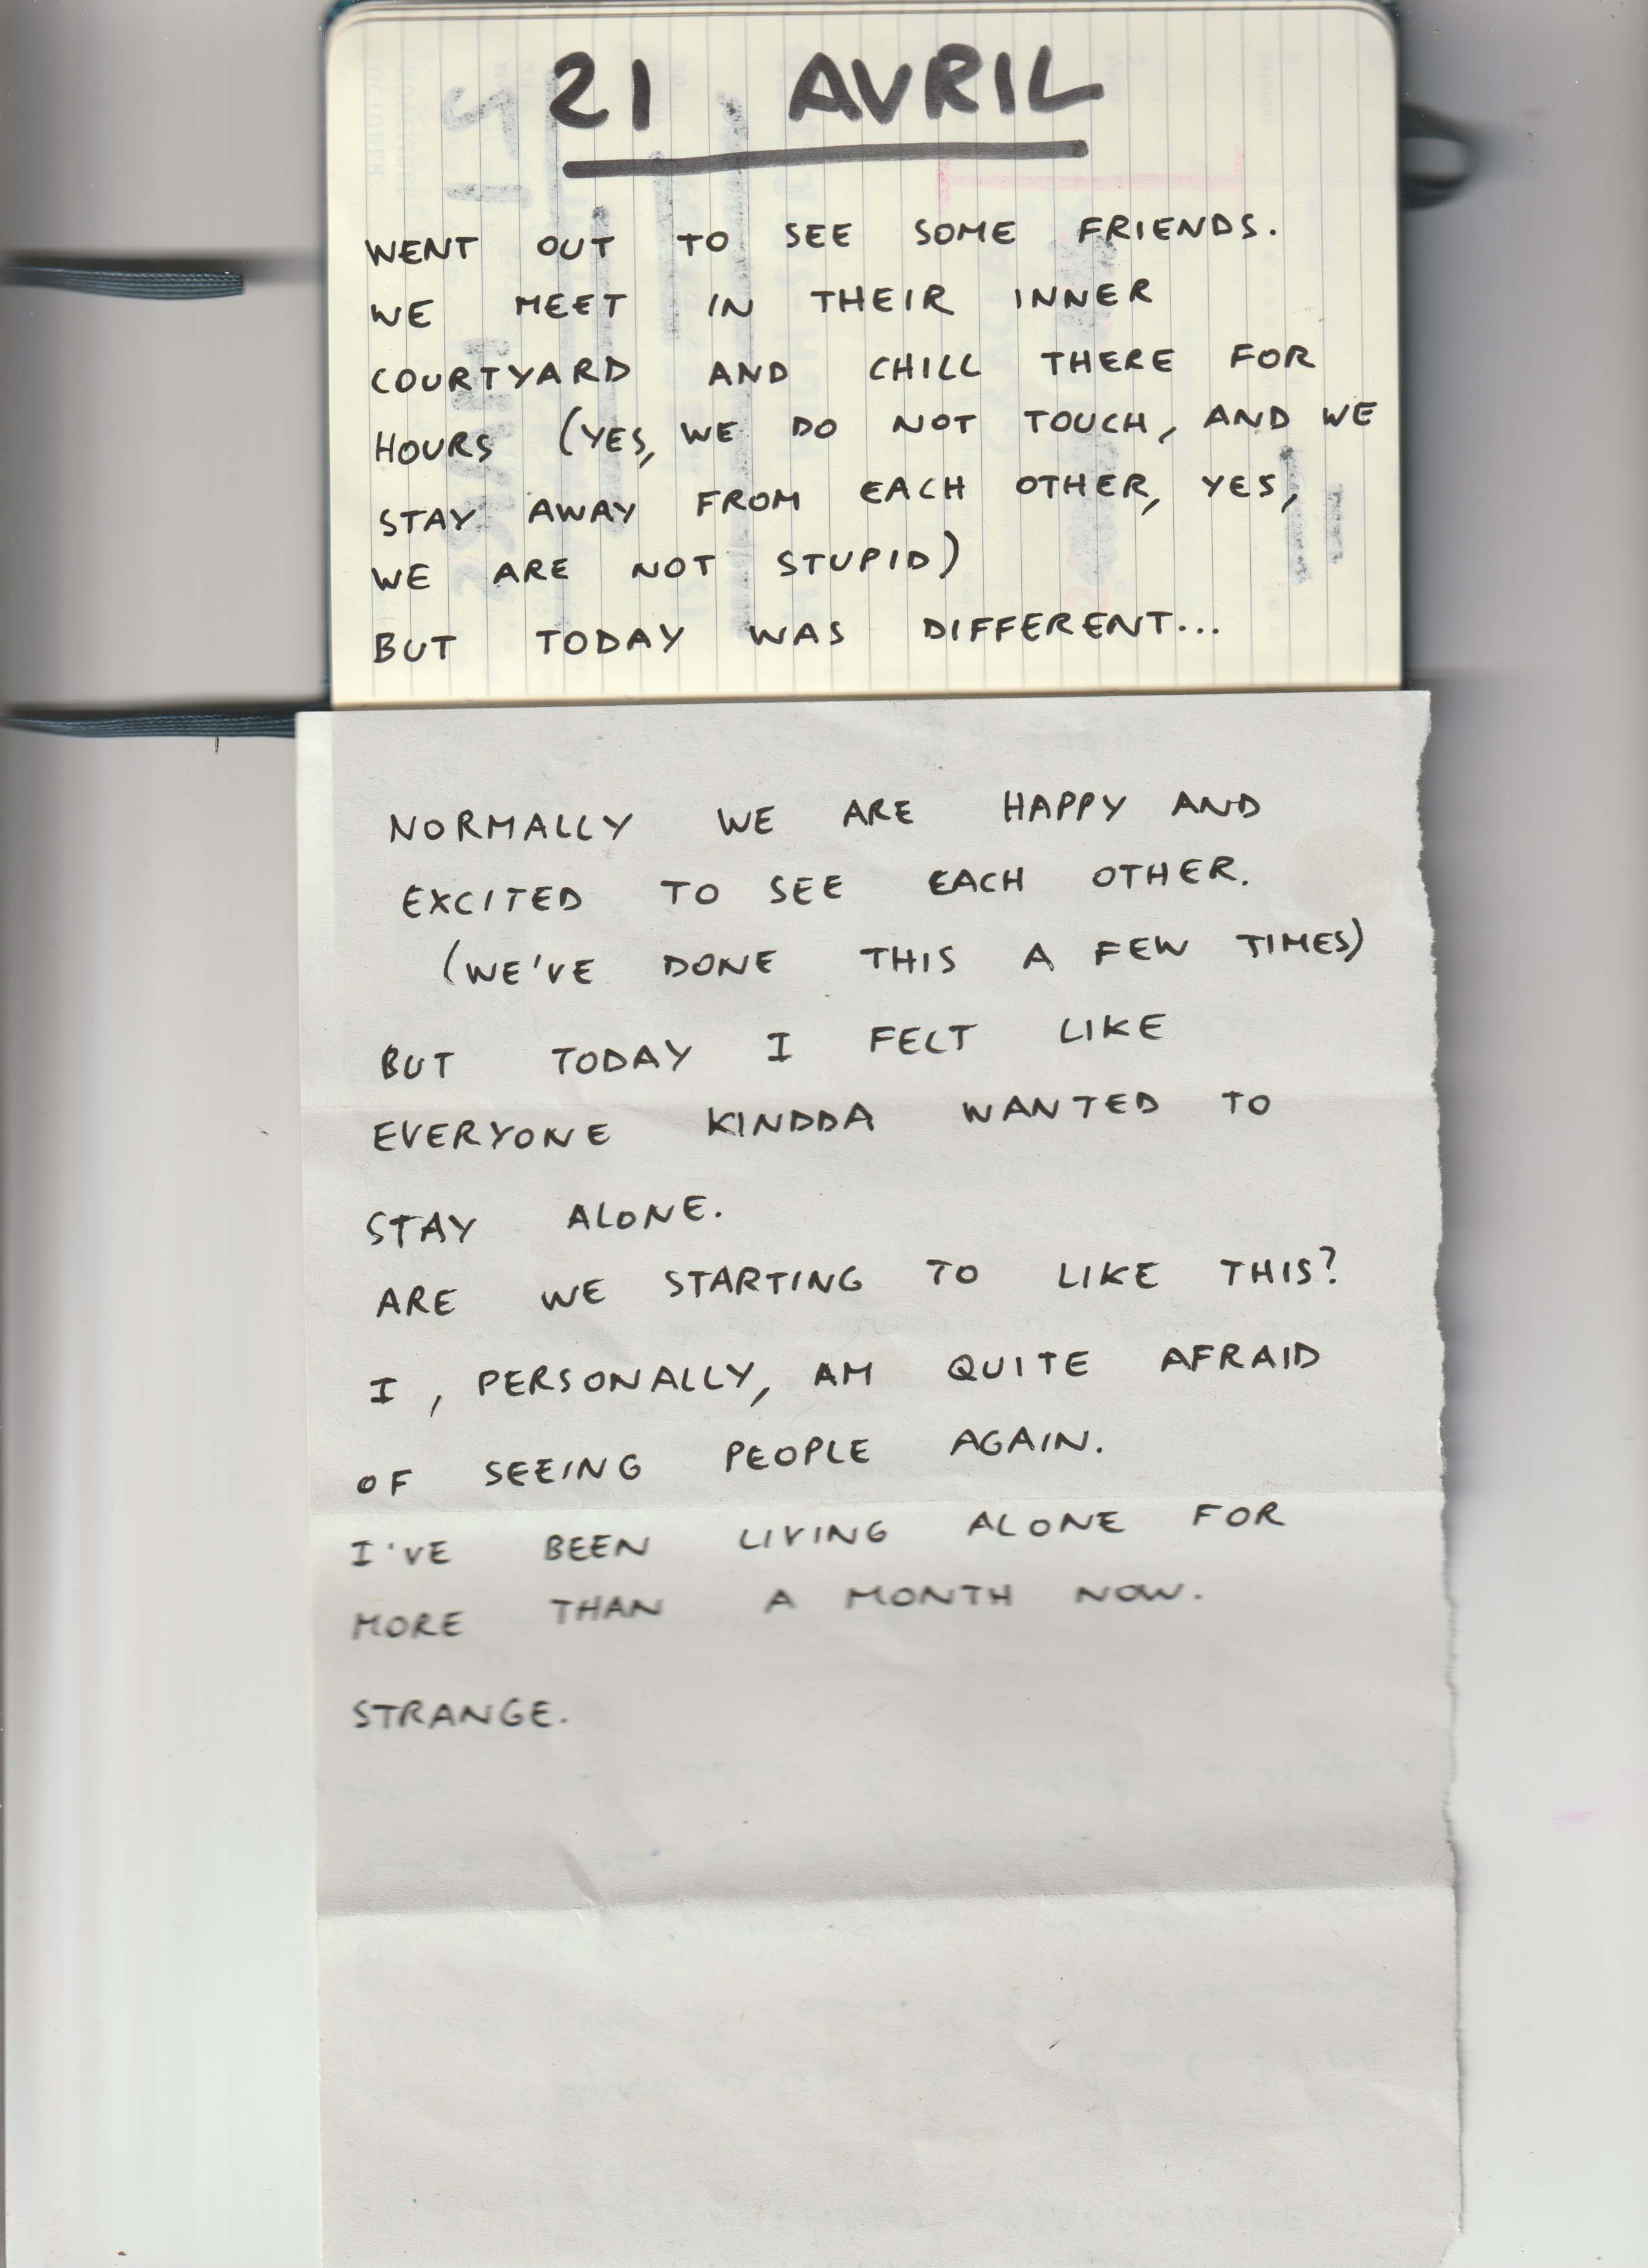 21 AVRIL
WENT OUT TO SEE SOME FRIENDS.
WE MEET IN THEIR INNER
COURTYARD AND CHILL THERE FOR
HOURS (YES, WE DO NOT TOUCH, AND WE
STAY AWAY FROM EACH OTHER, YES,
WE ARE NOT STUPID)
BUT TODAY WAS DIFFERENT...
NORMALLY WE ARE HAPPY AND
EXCITED TO SEE EACH OTHER.
(WE'VE DONE THIS A FEW TIMES)
BUT TODAY I FELT LIKE
EVERYONE KINDDA WANTED TO
STAY ALONE.
ARE WE STARTING TO LIKE THIS?
I, PERSONALLY, AM QUITE AFRAID
OF SEEING PEOPLE AGAIN.
I'VE BEEN LIVING ALONE FOR
MORE THAN A MONTH NOW.
STRANGE.